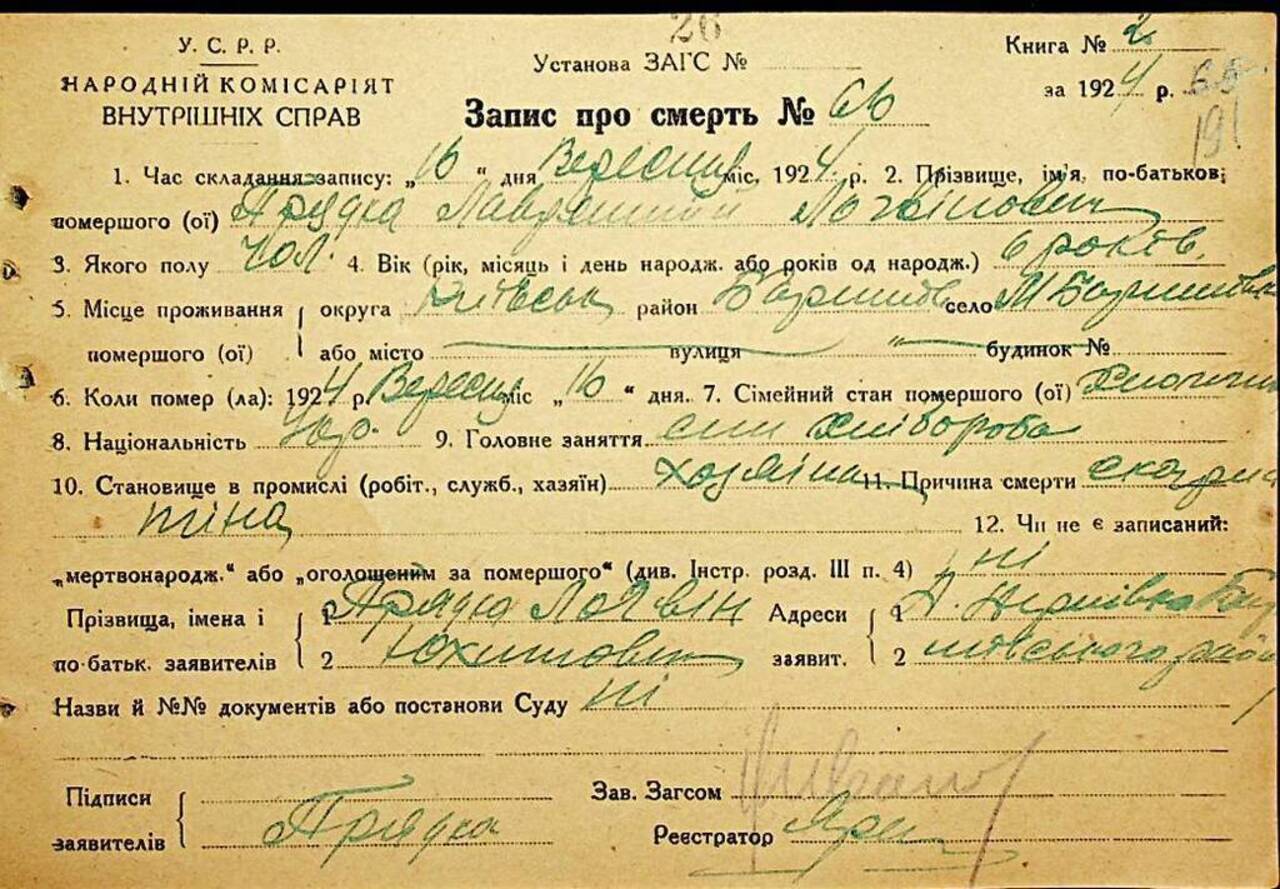 26
У. С. Р. Р.
НАРОДНІЙ КОМІСАРІЯТ
ВНУТРІШНІХ СПРАВ
Установа ЗАГС №
Книга № 2
за 1924 р.
191
Запис про смерть № 66
1. Час складання запису: „16“ дня Вересня міс. 1924 р. 2. Прізвище, ім'я, по-батькові
помершого (ої) Прядка Логвінович
3. Якого полу Чол. 4. Вік (рік, місяць і день народж. або років од народж.) 6 років.
5. Місце проживання помершого (ої) округа Київськ район Баришів село М Баришівка
або місто — вулиця —„— будинок №
6. Коли помер (ла): 1924 р. Вересня міс „16“ дня. 7. Сімейний стан помершого (ої)
8. Національність Укр. 9. Головне заняття син Хлібороба
10. Становище в промислі (робіт., служб., хазяїн) хозяїна 11. Причина смерти скарла
тіна 12. Чи не є записаний:
„мертвонародж.“ або „оголошеним за помершого“ (див. Інстр. розд. III п. 4) ні
Прізвища, імена і по-батьк. заявителів 1 Прядка Логвін Адреси заявит. 1
2 Юхимович 2 шівського рай
Назви й №№ документів або постанови Суду ні
Підписи заявителів Прядка
Зав. Загсом
Реєстратор